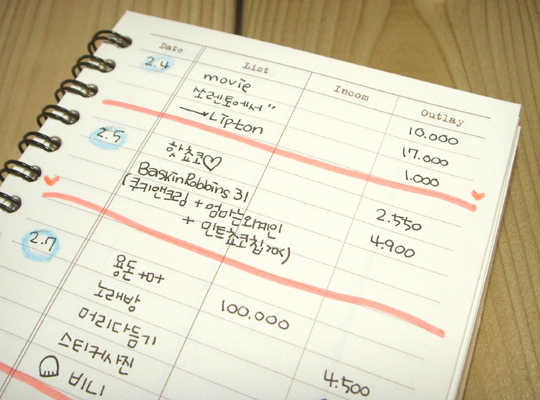 Date List Incom Outlay
2.4 movie 10.000
쏘렌토에서" 17.000
→Lipton 1.000
2.5 핫쵸코♡ 2.550
BaskinRobbins 31 4.900
(쿠키앤크림 + 엄마는외계인
+ 민트쵸코칩
2.7 용돈 100.000
노래방 4.500
머리다듬기
스티커사진
비니